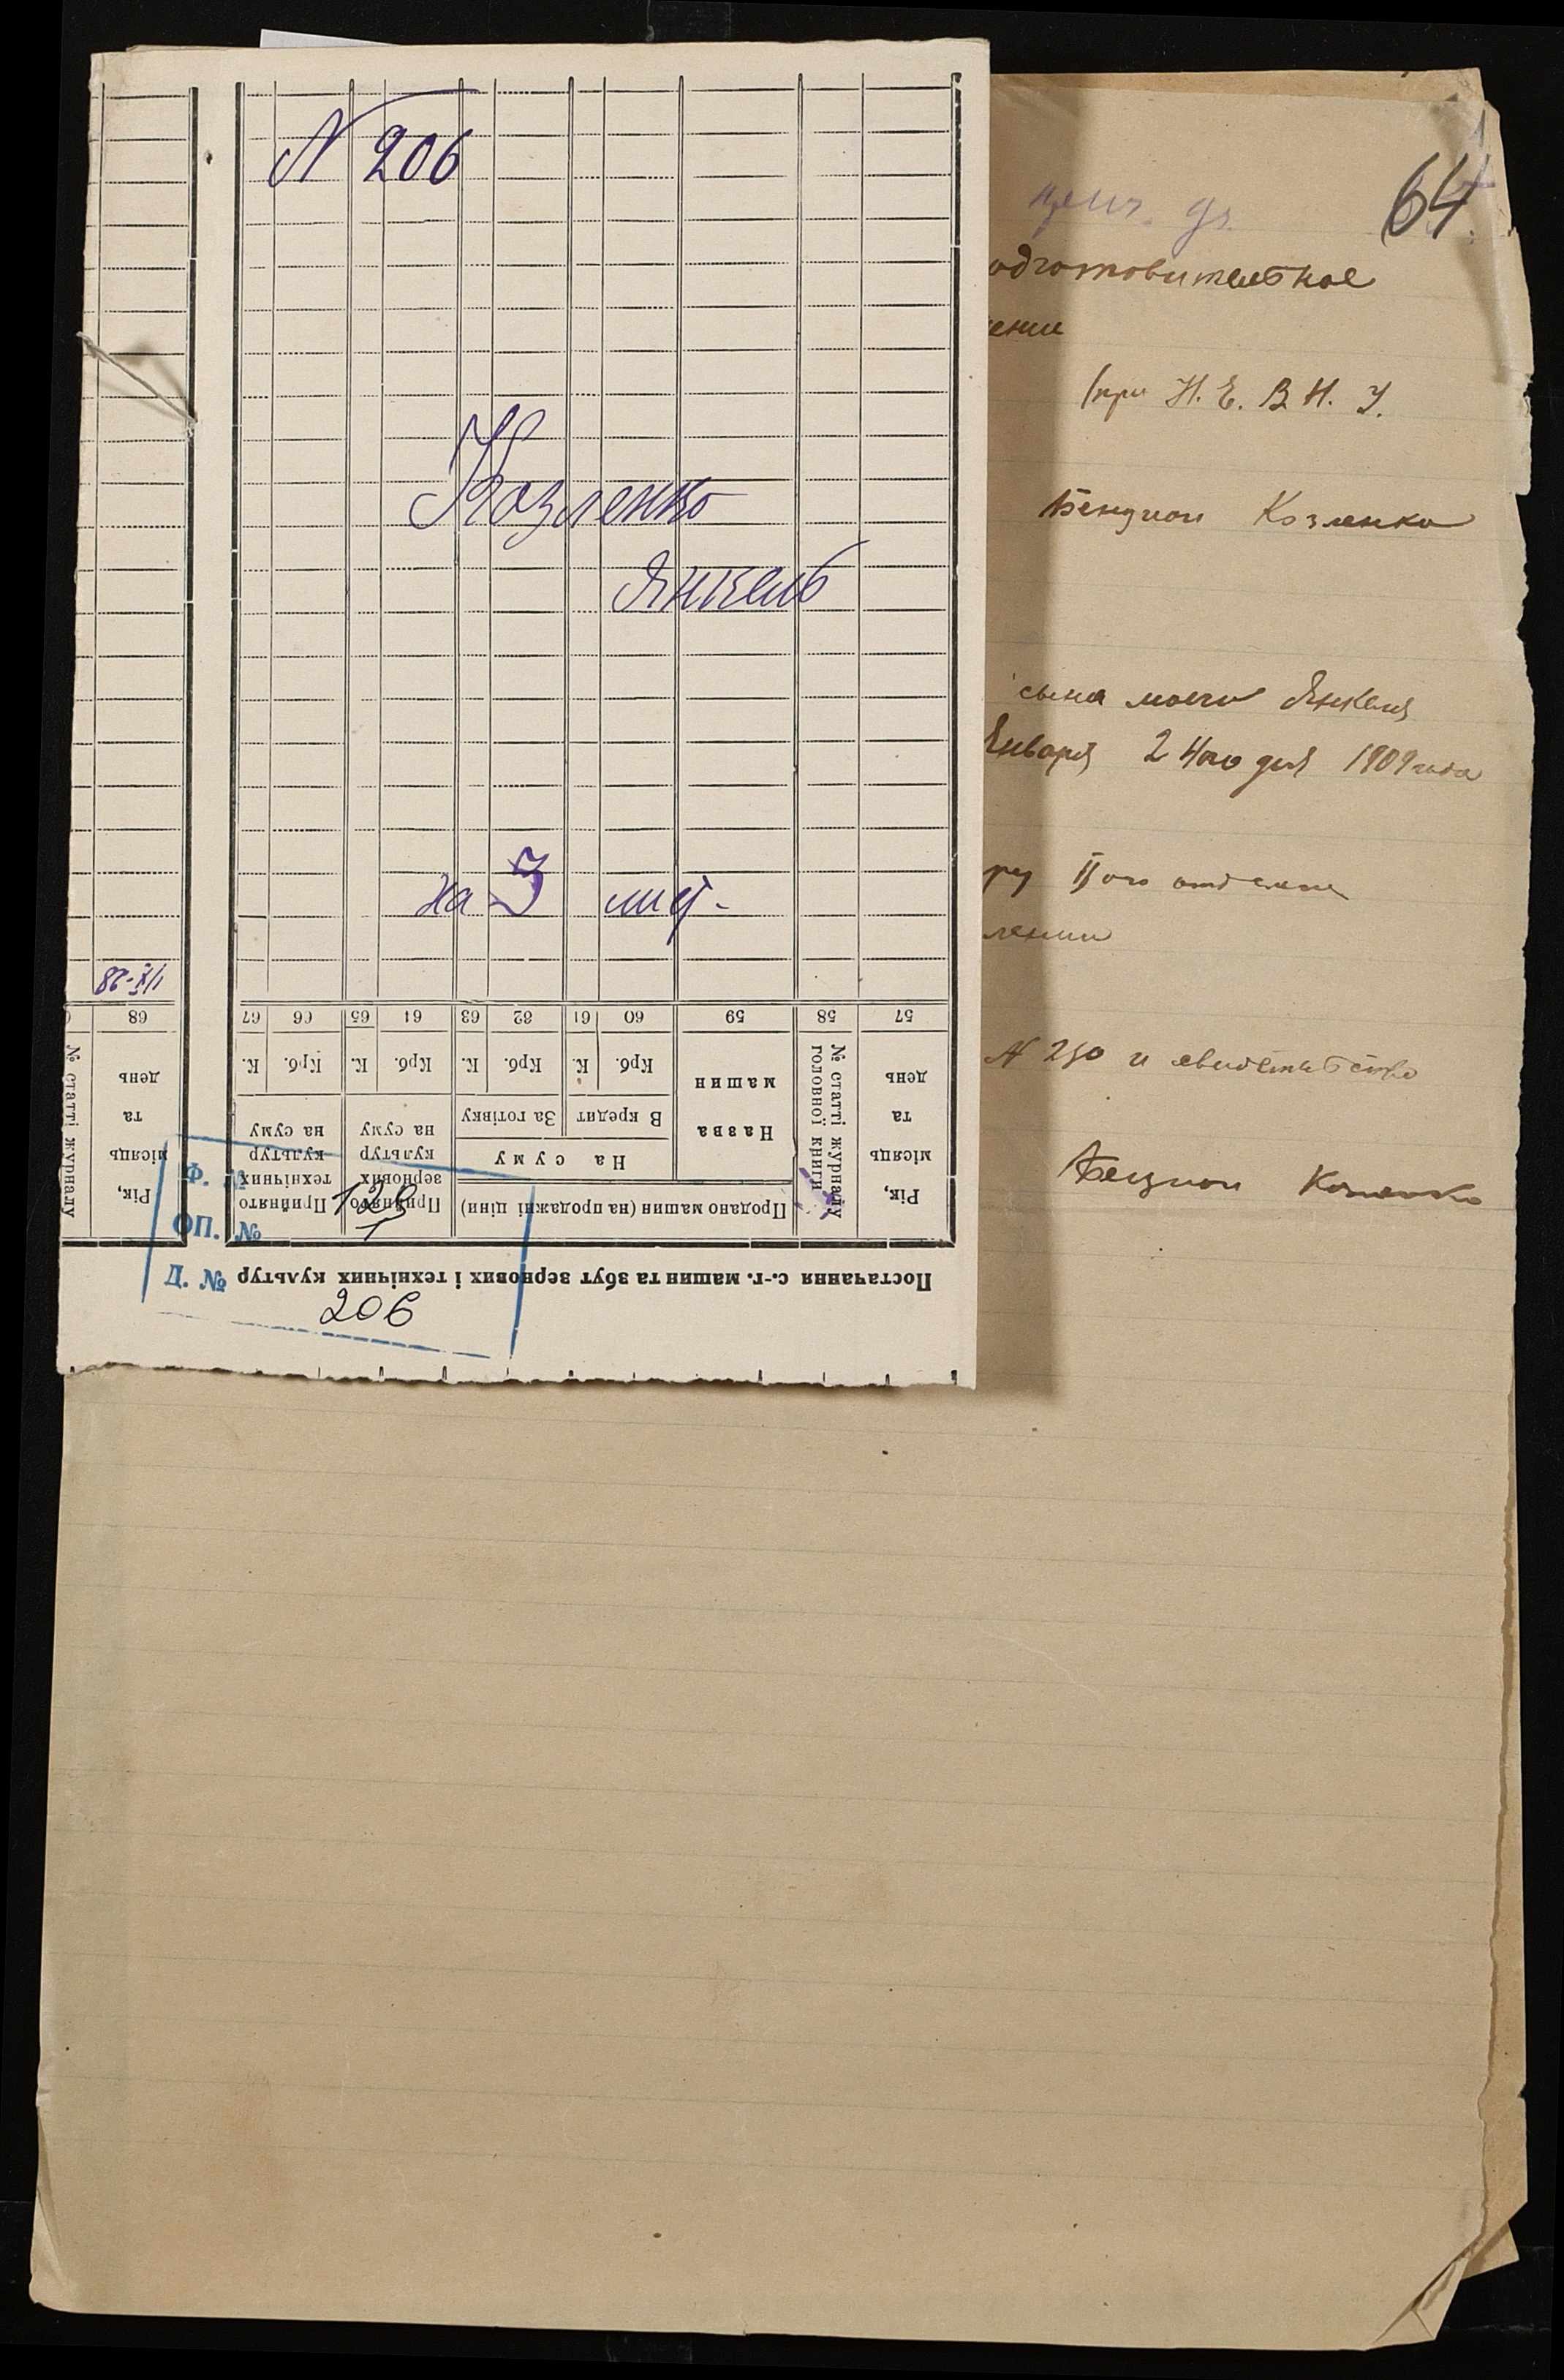 N 206
Козленко
Янкель
на 3 лис.
1/X-28
68
67
66
65
64
63
62
61
60
59
58
57
К.
Крб.
К.
Крб.
К.
Крб.
К.
Крб.
Назва машин
№ статті журналу головної книги
Рік, місяць та день
Рік, місяць та день
№ статті журналу
В кредит
За готівку
На суму
Продано машин (на продажні ціни)
Прийнято зернових культур на суму
Прийнято технічних культур на суму
Постачання с.-г. машин та збут зернових і технічних культур
Ф. №
129
ОП. №
1
Д. №
206
64
одготовительное
ение
(при Н. Е. В. Н. У.
Бенцион Козленко
сына моего Янкеля
Января 24го дня 1909 года
лении
N 250 и свидетельство
Бенцион Козленко